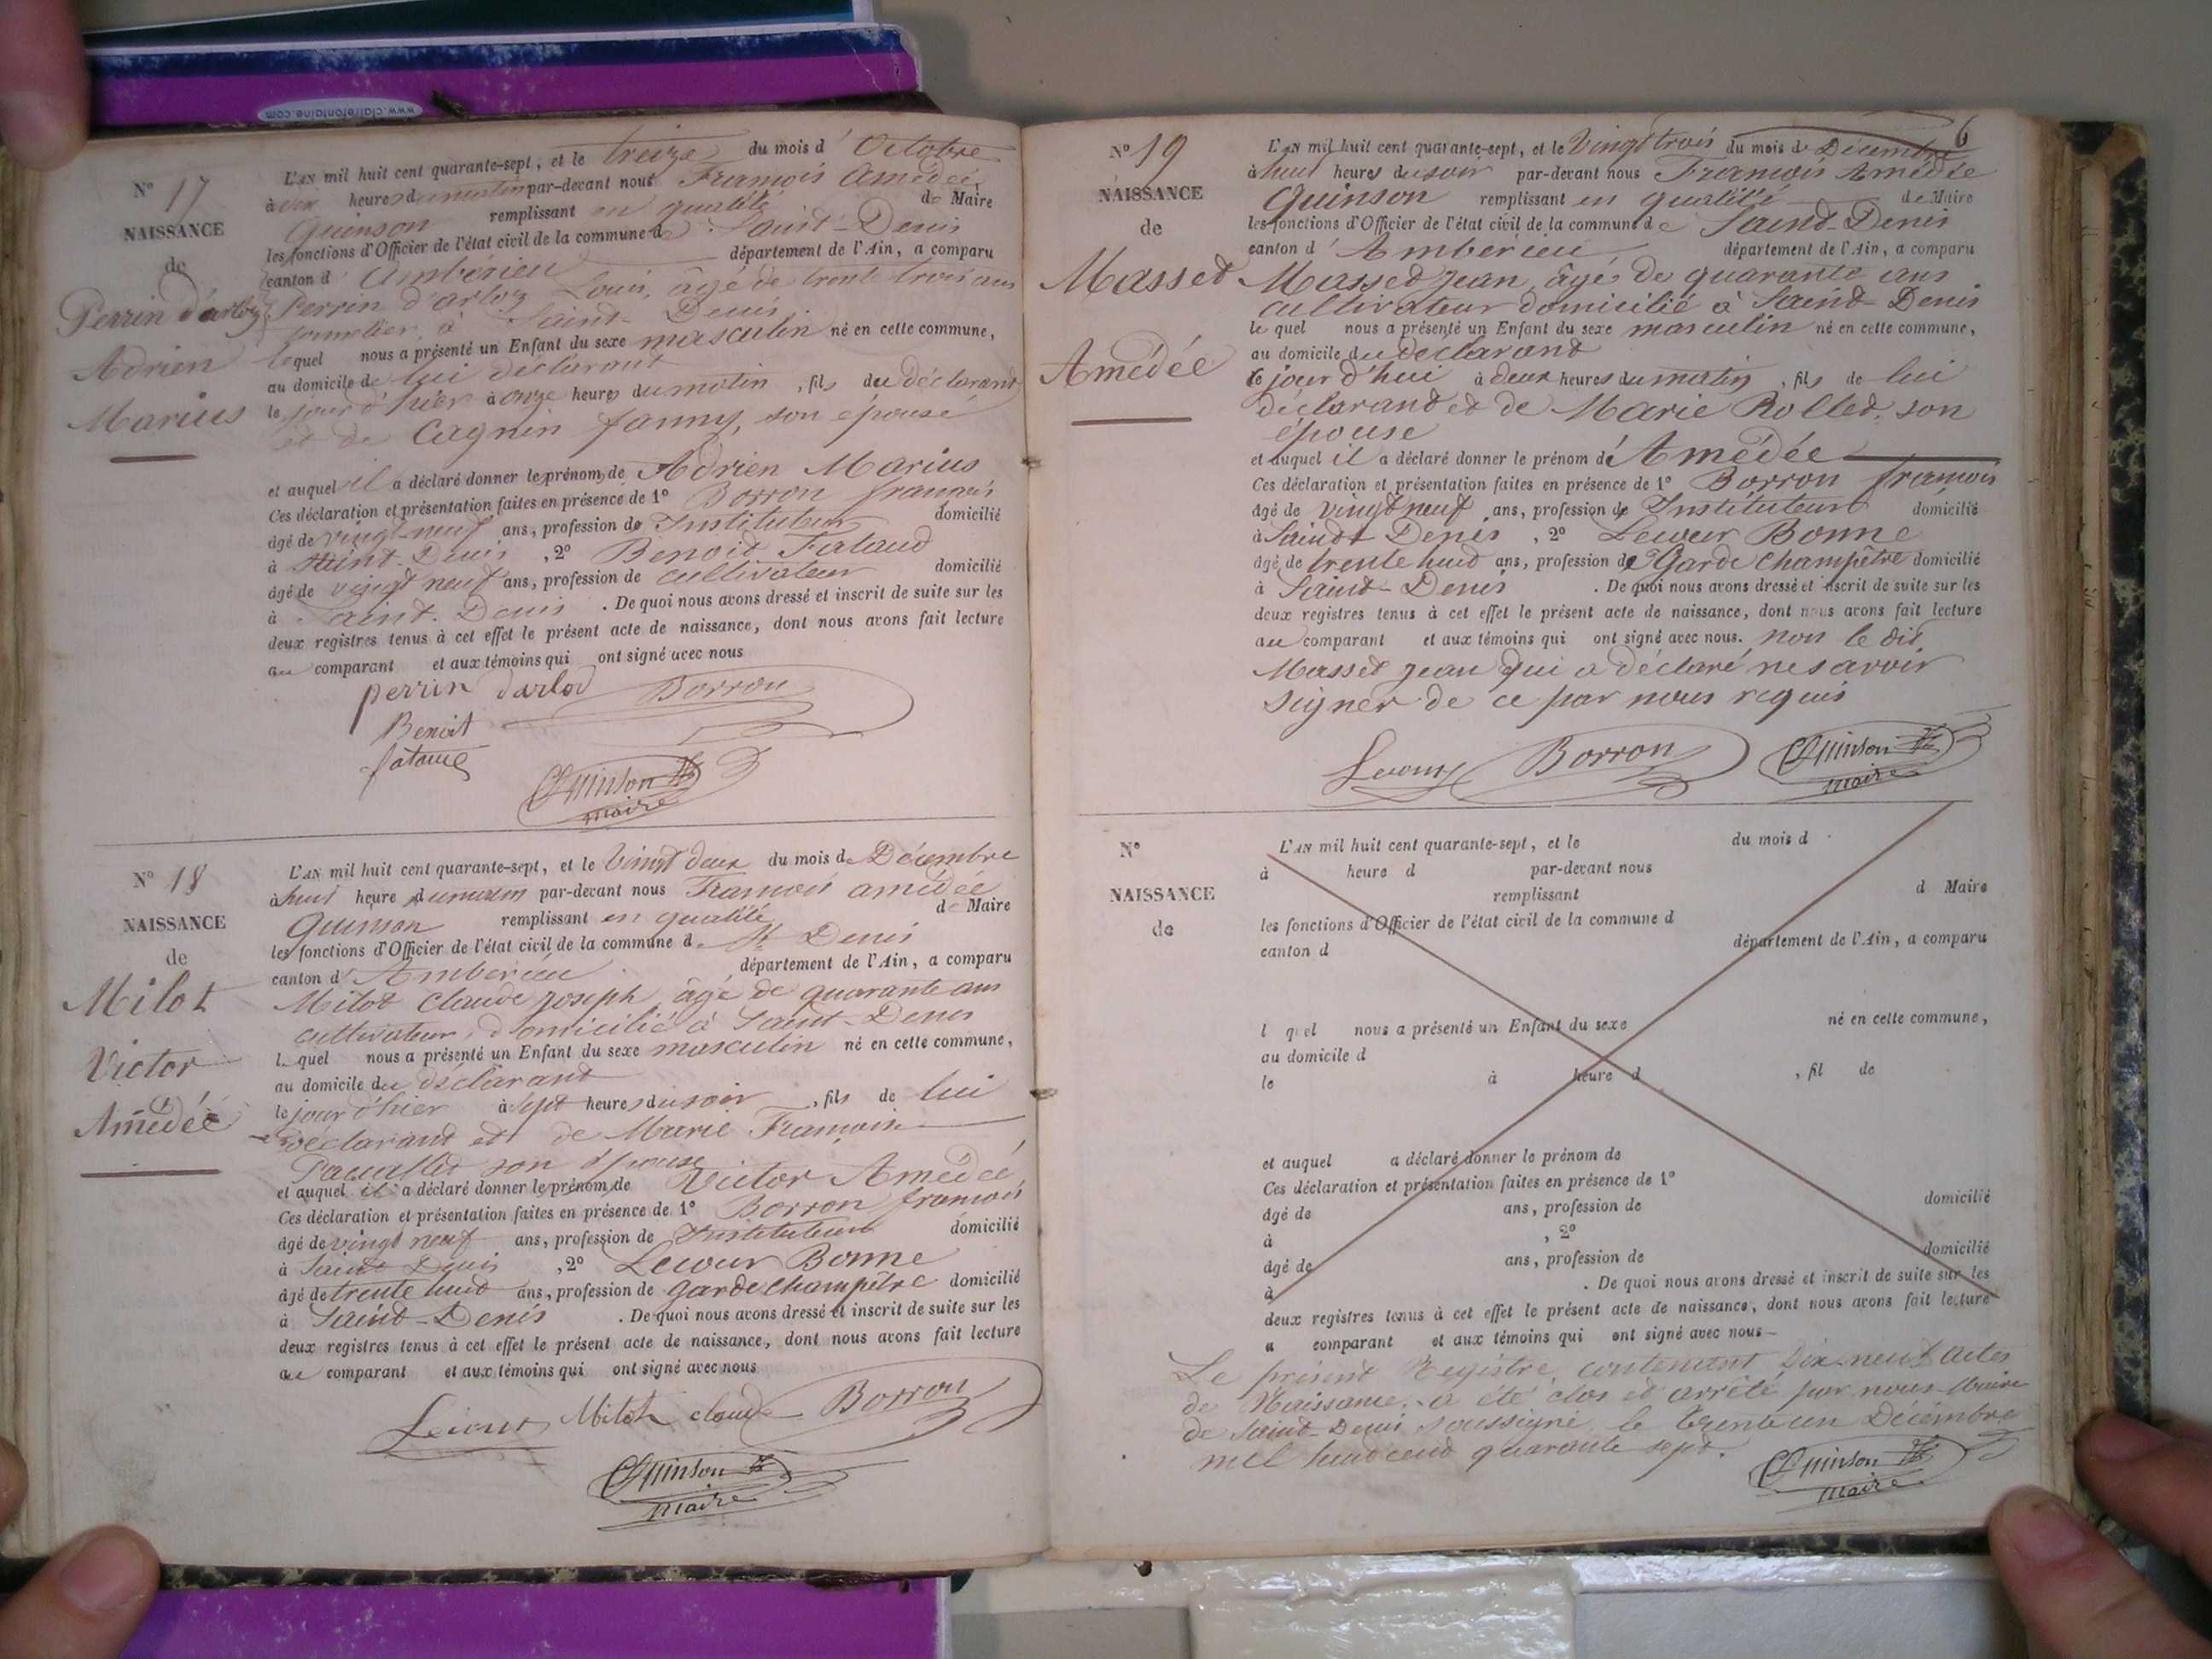 www.clairefontaine.com
N° 17
NAISSANCE
de
Perrin d'arloz
Adrien
Marius
L'AN mil huit cent quarante-sept, et le treize du mois d'Octobre
à dix heures du matin par-devant nous François Amédée
Quinson remplissant en qualité de Maire
les fonctions d'Officier de l'état civil de la commune de Saint-Denis
canton d'Ambérieu département de l'Ain, a comparu
Perrin d'arloz Louis, âgé de trente trois ans
à Saint-Denis,
lequel nous a présenté un Enfant du sexe masculin né en cette commune,
au domicile de lui déclarant
le jour d'hier à onze heures du matin, fils du déclarant
et de Cagnin fanny, son épouse
et auquel il a déclaré donner le prénom de Adrien Marius
Ces déclaration et présentation faites en présence de 1° Borron françois
âgé de vingt-neuf ans, profession de Instituteur domicilié
à Saint-Denis, 2° Benoit
âgé de vingt neuf ans, profession de cultivateur domicilié
à Saint-Denis. De quoi nous avons dressé et inscrit de suite sur les
deux registres tenus à cet effet le présent acte de naissance, dont nous avons fait lecture
au comparant et aux témoins qui ont signé avec nous
perrin darlod Borron
Benoit
Quinson
maire
N° 18
NAISSANCE
de
Milot
Victor
Amédée
L'AN mil huit cent quarante-sept, et le vingt deux du mois de Décembre
à huit heure du matin par-devant nous François amédée
Quinson remplissant en qualité de Maire
les fonctions d'Officier de l'état civil de la commune d. St Denis
canton d'Ambérieu département de l'Ain, a comparu
Milot Claude Joseph, âgé de quarante ans
cultivateur, domicilié à Saint-Denis
lequel nous a présenté un Enfant du sexe masculin né en cette commune,
au domicile du déclarant
le jour d'hier à sept heures du soir, fils de lui
déclarant et de Marie Françoise
son épouse
et auquel il a déclaré donner le prénom de Victor Amédée
Ces déclaration et présentation faites en présence de 1° Borron françois
âgé de vingt neuf ans, profession de Instituteur domicilié
à Saint Denis, 2° Lecour Bonne
âgé de trente huit ans, profession de garde champêtre domicilié
à Saint-Denis. De quoi nous avons dressé et inscrit de suite sur les
deux registres tenus à cet effet le présent acte de naissance, dont nous avons fait lecture
au comparant et aux témoins qui ont signé avec nous
Lecour Milot claude Borron
Quinson
maire
6
N° 19
NAISSANCE
de
Masset
Amédée
L'AN mil huit cent quarante-sept, et le vingt trois du mois de Décembre
à huit heures du soir par-devant nous François Amédée
Quinson remplissant en qualité de Maire
les fonctions d'Officier de l'état civil de la commune de Saint-Denis
canton d'Ambérieu département de l'Ain, a comparu
Masset Jean, âgé de quarante ans
cultivateur domicilié à Saint-Denis
lequel nous a présenté un Enfant du sexe masculin né en cette commune,
au domicile du déclarant
ce jour d'hui à deux heures du matin, fils de lui
déclarant et de Marie Rollet, son
épouse
et auquel il a déclaré donner le prénom d'Amédée
Ces déclaration et présentation faites en présence de 1° Borron françois
âgé de vingt neuf ans, profession de Instituteur domicilié
à Saint Denis, 2° Lecour Bonne
âgé de trente huit ans, profession de Garde champêtre domicilié
à Saint-Denis. De quoi nous avons dressé et inscrit de suite sur les
deux registres tenus à cet effet le présent acte de naissance, dont nous avons fait lecture
au comparant et aux témoins qui ont signé avec nous. non le dit
Masset Jean qui a déclaré ne savoir
signer de ce par nous requis
Lecour Borron Quinson
maire
N°
NAISSANCE
de
L'AN mil huit cent quarante-sept, et le du mois d
à heure d par-devant nous
remplissant d Maire
les fonctions d'Officier de l'état civil de la commune d
canton d département de l'Ain, a comparu
l quel nous a présenté un Enfant du sexe né en cette commune,
au domicile d
le à heure d, fil de
et auquel a déclaré donner le prénom de
Ces déclaration et présentation faites en présence de 1°
âgé de ans, profession de domicilié
à , 2°
âgé de ans, profession de domicilié
à . De quoi nous avons dressé et inscrit de suite sur les
deux registres tenus à cet effet le présent acte de naissance, dont nous avons fait lecture
a comparant et aux témoins qui ont signé avec nous
Le présent Registre contenant dix-neuf actes
de Naissance, a été clos et arrêté par nous Maire
de Saint-Denis soussigné le trente un Décembre
mil huit cent quarante sept.
Quinson
maire